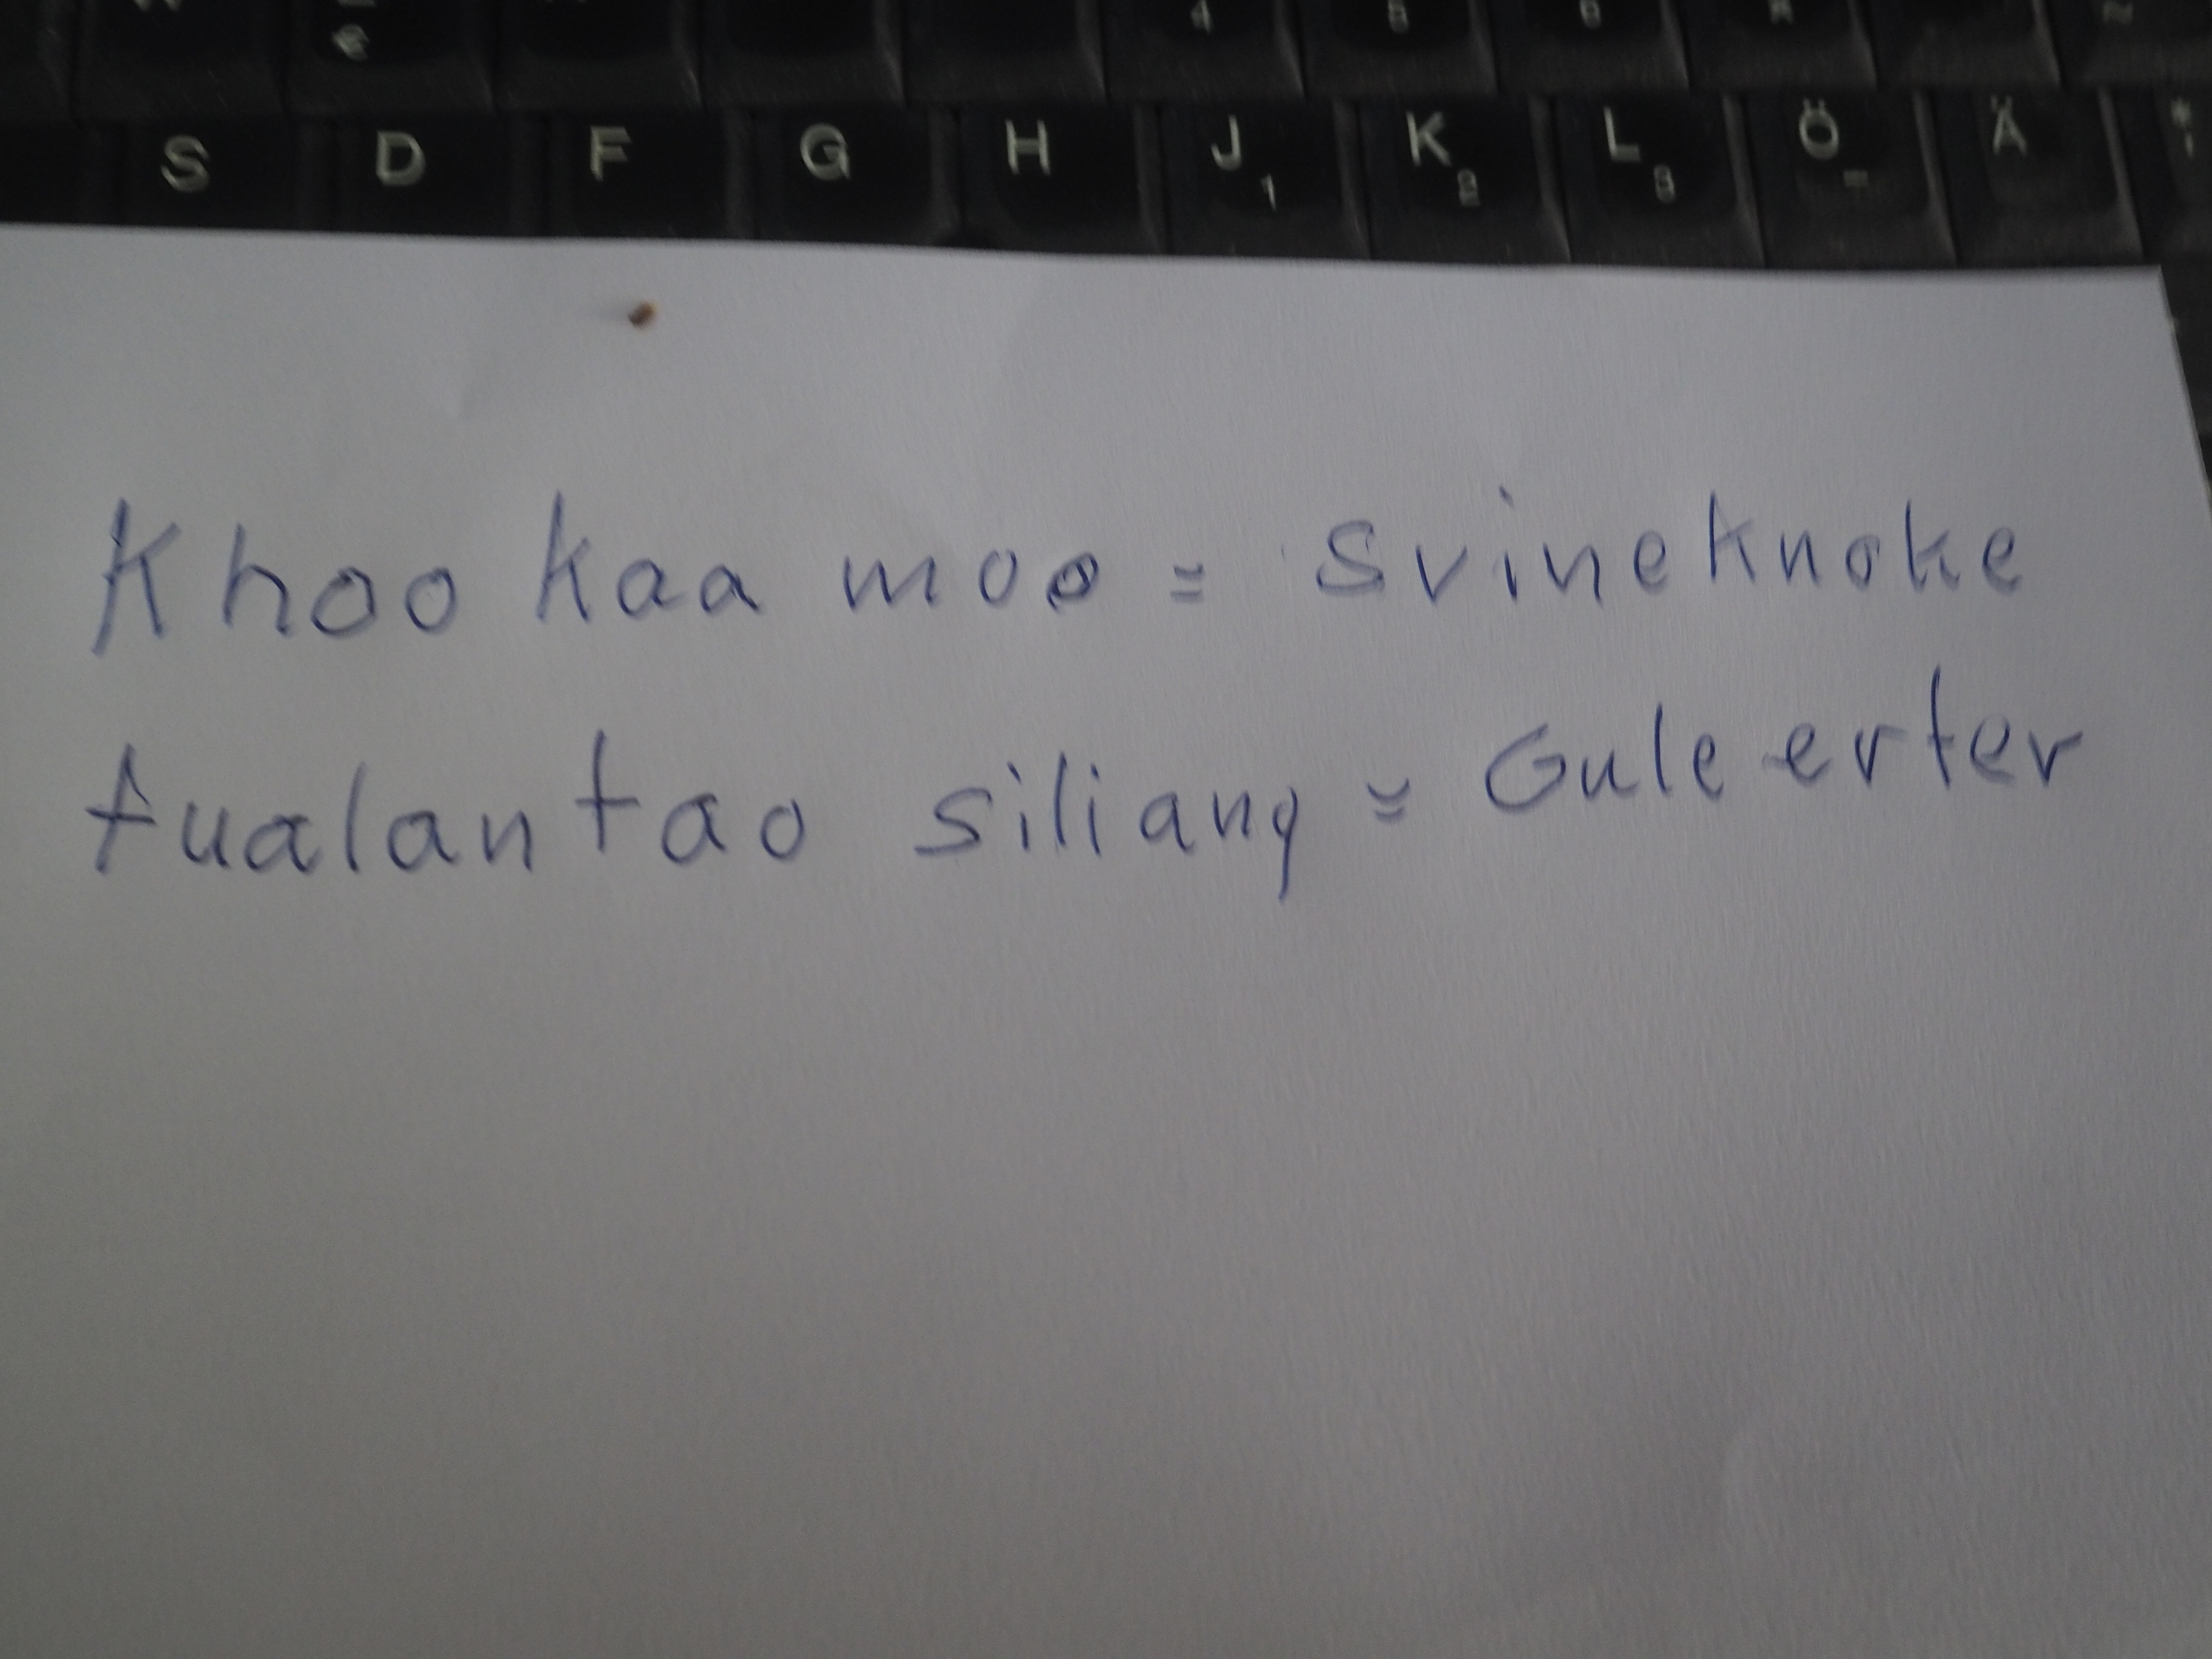 €
S D F G H J 1 K 2 L 3 Ö - Ä
Khoo kaa moo = svineknoke
tualantao siliang = Gule erter